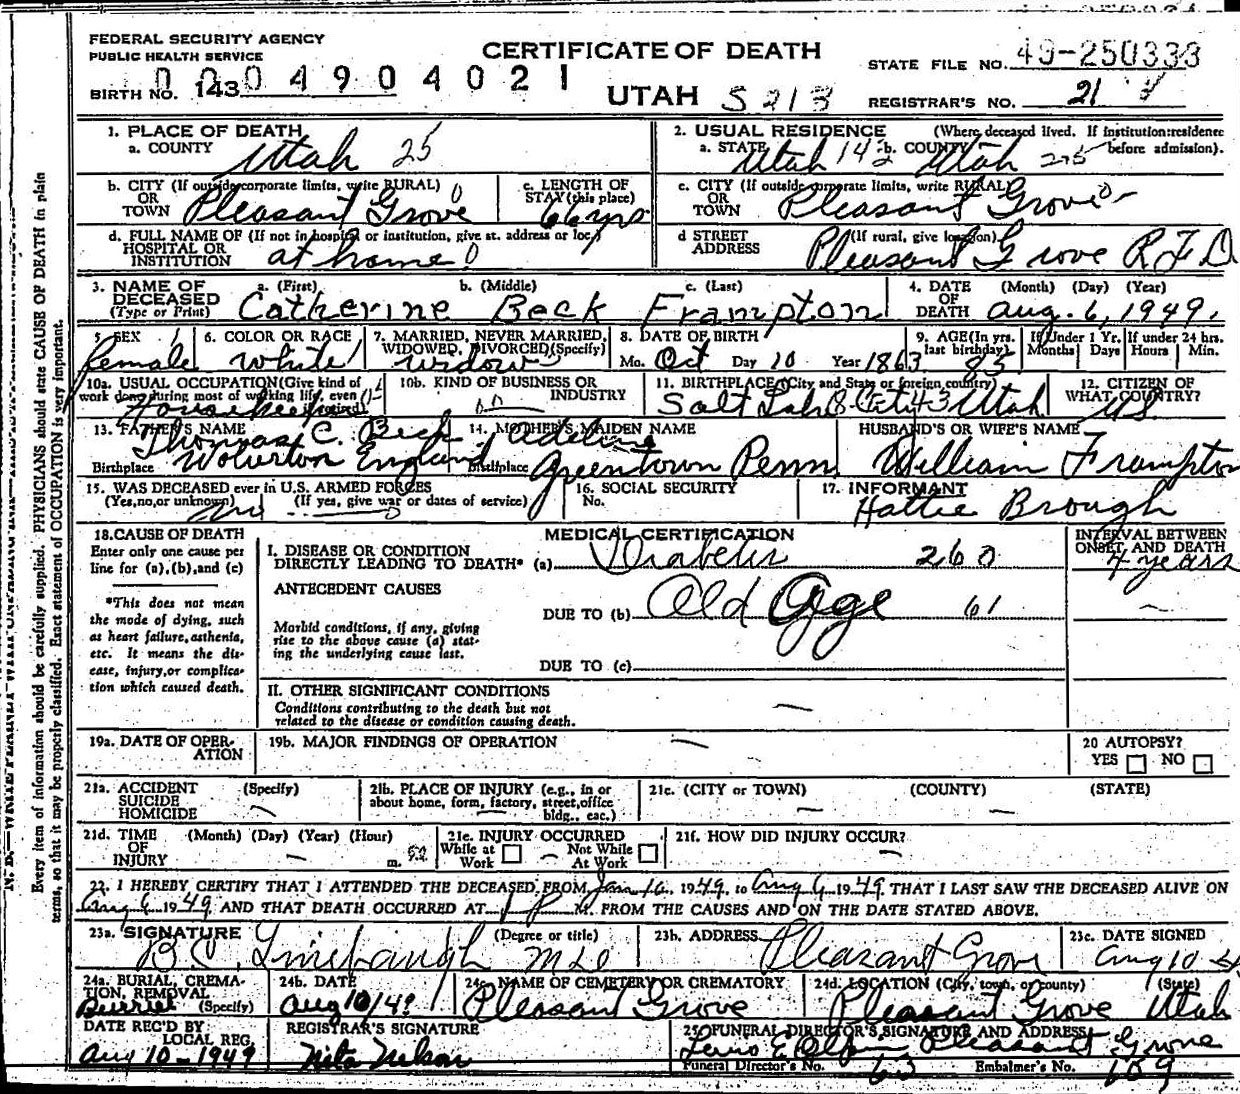 FEDERAL SECURITY AGENCY
PUBLIC HEALTH SERVICE
CERTIFICATE OF DEATH
STATE FILE NO. 49-250333
BIRTH NO. 143
0004904021
UTAH S213
REGISTRAR'S NO. 21
1. PLACE OF DEATH
a. COUNTY Utah 25
2. USUAL RESIDENCE (Where deceased lived. If institution: residence before admission).
a. STATE Utah 142 b. COUNTY Utah
b. CITY (If outside corporate limits, write RURAL) OR TOWN Pleasant Grove 0
c. LENGTH OF STAY (this place) 66 yrs
c. CITY (If outside corporate limits, write RURAL) OR TOWN Pleasant Grove
d. FULL NAME OF (If not in hospital or institution, give st. address or loc.) HOSPITAL OR INSTITUTION at home 0
d STREET ADDRESS (If rural, give location) Pleasant Grove R F D
3. NAME OF DECEASED (Type or Print)
a. (First) Catherine b. (Middle) Beck c. (Last) Frampton
4. DATE OF DEATH (Month) (Day) (Year) Aug. 6, 1949.
5. SEX female
6. COLOR OR RACE White
7. MARRIED, NEVER MARRIED, WIDOWED, DIVORCED (Specify) Widow
8. DATE OF BIRTH Mo. Oct Day 10 Year 1863
9. AGE (In yrs. last birthday) 85
If Under 1 Yr. Months Days
If under 24 hrs. Hours Min.
10a. USUAL OCCUPATION (Give kind of work done during most of working life, even if retired)
10b. KIND OF BUSINESS OR INDUSTRY
11. BIRTHPLACE (City and State or foreign country) Salt Lake City 43 Utah
12. CITIZEN OF WHAT COUNTRY? US
13. FATHER'S NAME Thomas C. Beck
Birthplace Wolverton England
14. MOTHER'S MAIDEN NAME Adeline
Birthplace Greentown Penn.
HUSBAND'S OR WIFE'S NAME William Frampton
15. WAS DECEASED ever in U.S. ARMED FORCES (Yes, no, or unknown) (If yes, give war or dates of service)
16. SOCIAL SECURITY No.
17. INFORMANT Hattie Brough
18. CAUSE OF DEATH
Enter only one cause per line for (a), (b), and (c)
*This does not mean the mode of dying, such as heart failure, asthenia, etc. It means the disease, injury, or complication which caused death.
MEDICAL CERTIFICATION
INTERVAL BETWEEN ONSET AND DEATH
I. DISEASE OR CONDITION DIRECTLY LEADING TO DEATH* (a) Diabetes 260
7 years
ANTECEDENT CAUSES
DUE TO (b) Old Age 61
Morbid conditions, if any, giving rise to the above cause (a) stating the underlying cause last.
DUE TO (c)
II. OTHER SIGNIFICANT CONDITIONS
Conditions contributing to the death but not related to the disease or condition causing death.
19a. DATE OF OPERATION
19b. MAJOR FINDINGS OF OPERATION
20 AUTOPSY? YES NO
21a. ACCIDENT SUICIDE HOMICIDE (Specify)
21b. PLACE OF INJURY (e.g., in or about home, form, factory, street, office bldg., eac.)
21c. (CITY or TOWN) (COUNTY) (STATE)
21d. TIME OF INJURY (Month) (Day) (Year) (Hour) m.
21e. INJURY OCCURRED While at Work Not While At Work
21f. HOW DID INJURY OCCUR?
22. I HEREBY CERTIFY THAT I ATTENDED THE DECEASED FROM Jan 16, 1949, to Aug 6 1949 THAT I LAST SAW THE DECEASED ALIVE ON
Aug 6 1949 AND THAT DEATH OCCURRED AT 1 P M. FROM THE CAUSES AND ON THE DATE STATED ABOVE.
23a. SIGNATURE (Degree or title) B C Linebaugh M D
23b. ADDRESS Pleasant Grove
23c. DATE SIGNED Aug 10
24a. BURIAL, CREMATION, REMOVAL (Specify) Burriel
24b. DATE Aug 10/49
24c. NAME OF CEMETERY OR CREMATORY Pleasant Grove
24d. LOCATION (City, town, or county) (State) Pleasant Grove Utah
DATE REC'D BY LOCAL REG. Aug 10-1949
REGISTRAR'S SIGNATURE Nita Nelson
25. FUNERAL DIRECTOR'S SIGNATURE AND ADDRESS Pleasant Grove
Funeral Director's No. 63 Embalmer's No. 109
Every item of information should be carefully supplied. PHYSICIANS should state CAUSE OF DEATH in plain
terms, so that it may be properly classified. Exact statement of OCCUPATION is very important.